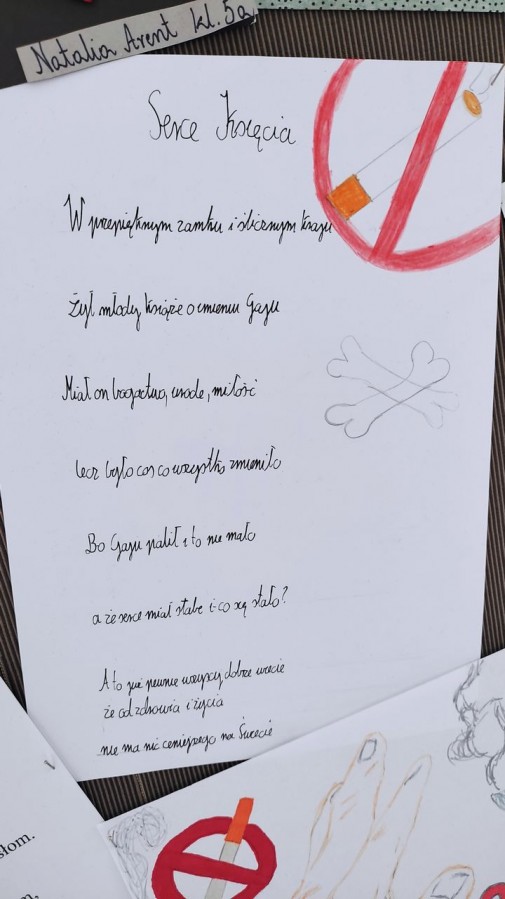 Natalia Arent kl. 5a
Serce Księcia
W przepięknym zamku i ślicznym kraju
Żył młody książe o imieniu Gaju
Miał on bogactwo, urode, miłość
lecz było coś co wszystko zmieniło
Bo Gaju palił i to nie mało
a że serce miał słabe i co się stało?
A to już pewnie wszyscy dobrze wiecie
że od zdrowia i życia
nie ma nic cenniejszego na Świecie
słom.